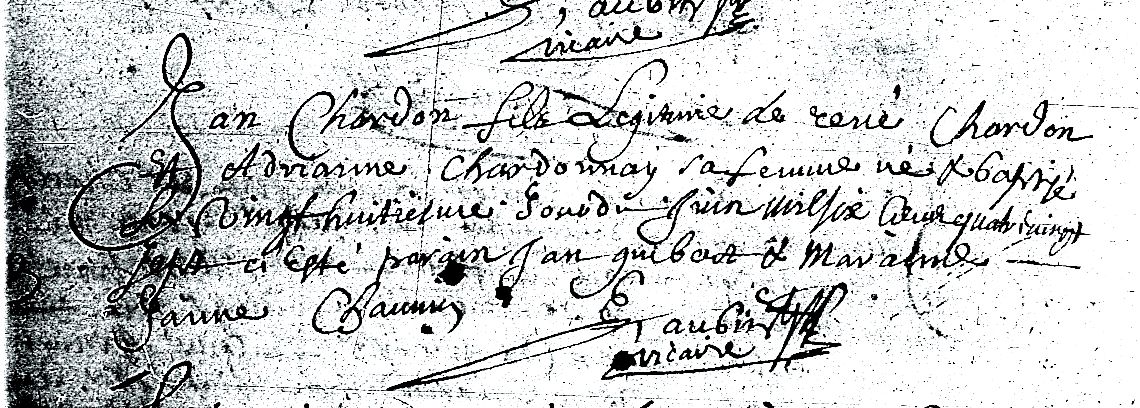 aubin
vicaire
Jan Chardon fils Legitime de rené Chardon
Et Adrianne Chardonnay sa femme né & baptisé
vingt huitiesme Jour de Juin mil six Cens quatrevingt
sept a Esté parain Jan guibert & Maraine
Janne
aubin
vicaire